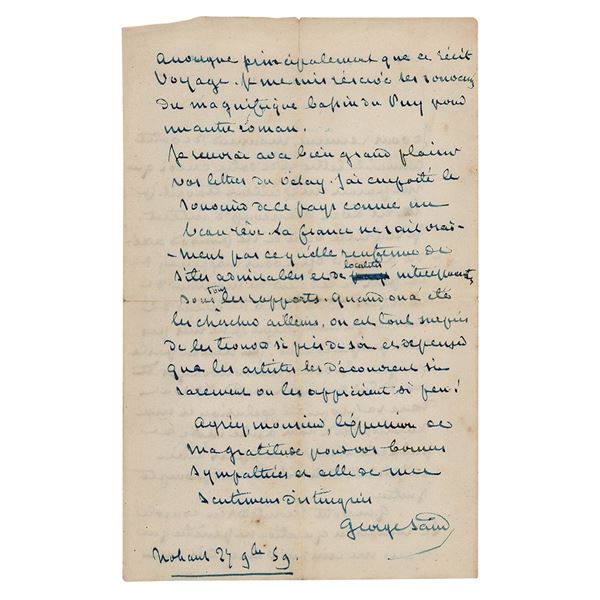 auvergne principalement que ce récit
voyage. Je me suis réservé les souvenirs
du magnifique bassin du Puy pour
un autre roman.
Je recevrai avec bien grand plaisir
vos lettres du Velay. J'ai emporté le
souvenir de ce pays comme un
beau rêve. La france ne sait vrai-
-ment pas ce qu'elle renferme de
sites admirables et de localités intéressantes
sous tous les rapports. Quand on a été
les chercher ailleurs, on est tout surpris
de les trouver si près de soi et de penser
que les artistes les découvrent si
rarement ou les apprécient si peu!
Agréez, monsieur, l'expression de
ma gratitude pour vos bonnes
sympathies et celle de mes
sentimens distingués
George Sand
Nohant 27 9bre 59.